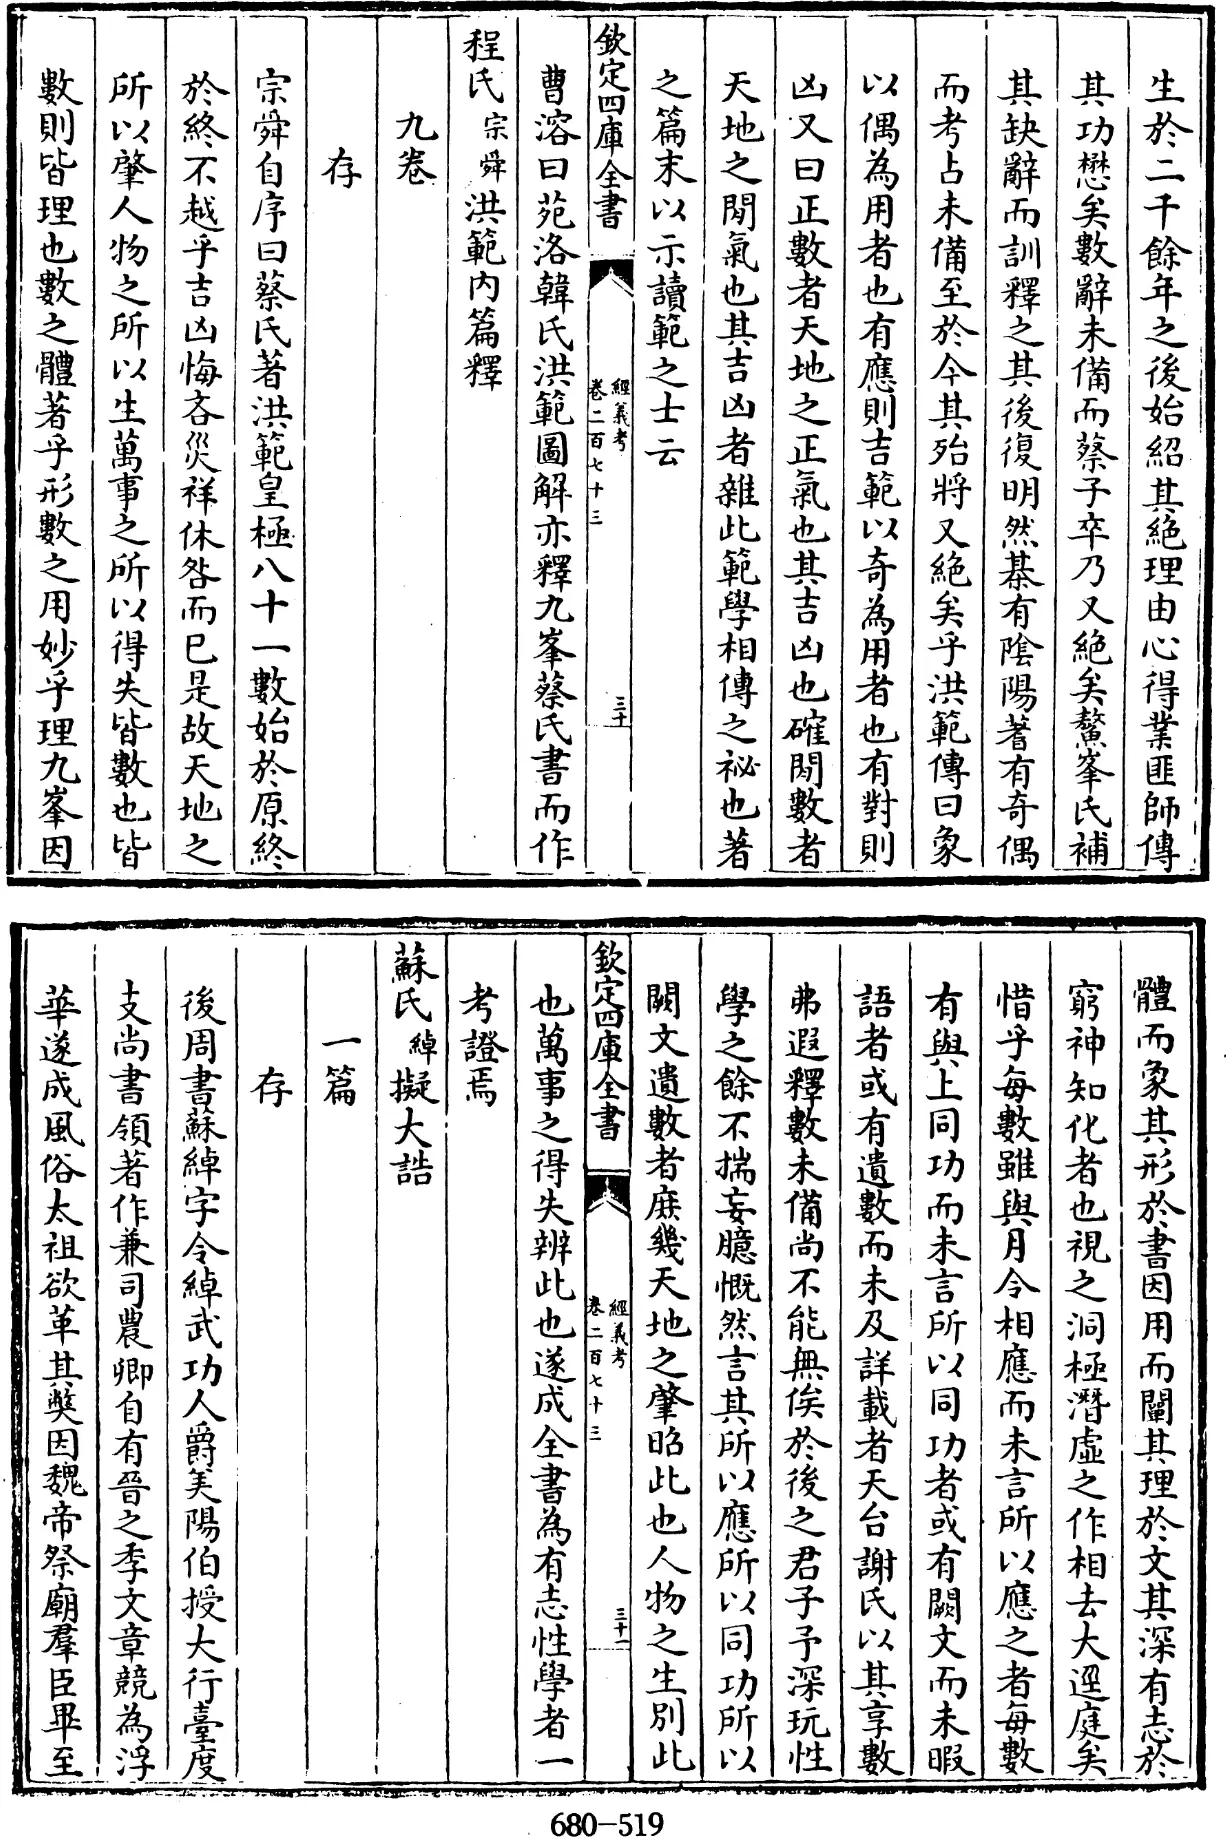 生於二千餘年之後始紹其絶理由心得業匪師傳
其功懋矣數辭未備而蔡子卒乃又絶矣鰲峯氏補
其缺辭而訓釋之其後復明然朞有陰陽蓍有奇偶
而考占未備至於今其殆將又絶矣乎洪範傳曰象
以偶為用者也有應則吉範以奇為用者也有對則
凶又曰正數者天地之正氣也其吉凶也確閏數者
天地之閏氣也其吉凶者雜此範學相傳之祕也著
之篇末以示讀範之士云
欽定四庫全書
經義考
卷二百七十三
三十
曹溶曰苑洛韓氏洪範圖解亦釋九峯蔡氏書而作
程氏宗舜洪範内篇釋
九卷
存
宗舜自序曰蔡氏著洪範皇極八十一數始於原終
於終不越乎吉凶悔吝災祥休咎而已是故天地之
所以肇人物之所以生萬事之所以得失皆數也皆
數則皆理也數之體著乎形數之用妙乎理九峯因
體而象其形於書因用而闡其理於文其深有志於
窮神知化者也視之洞極潛虛之作相去大逕庭矣
惜乎每數雖與月令相應而未言所以應之者每數
有與上同功而未言所以同功者或有闕文而未暇
語者或有遺數而未及詳載者天台謝氏以其享數
弗遐釋數未備尚不能無俟於後之君子予深玩性
學之餘不揣妄臆慨然言其所以應所以同功所以
闕文遺數者庶幾天地之肇昭此也人物之生别此
欽定四庫全書
經義考
卷二百七十三
三十一
也萬事之得失辨此也遂成全書為有志性學者一
考證焉
蘇氏綽擬大誥
一篇
存
後周書蘇綽字令綽武功人爵美陽伯授大行臺度
支尚書領著作兼司農卿自有晉之季文章競為浮
華遂成風俗太祖欲革其獘因魏帝祭廟羣臣畢至
680-519